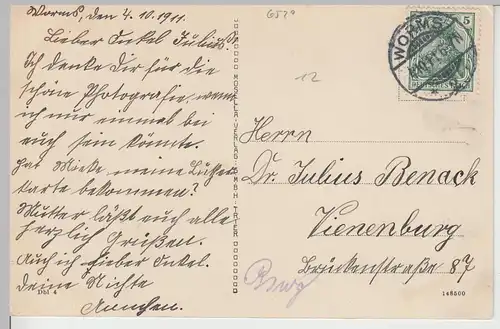 Worms, den 4.10.1911.
Lieber Onkel Julius!
Ich danke Dir für die
schöne Photografie, wenn
ich nur einmal bei
euch sein könnte.
Hat Mieke meine
karte bekommen?
Mutter läßt euch alle
herzlich Grüßen.
Auch ich Lieber Onkel.
deine Nichte
Annchen.
Dbl 4
MOSELLA-VERLAG G.M.B.H. TRIER
12
WORMS
5
DEUTSCHES REICH
Herrn
Dr. Julius Benack
Vienenburg
Brückenstraße 87
148500